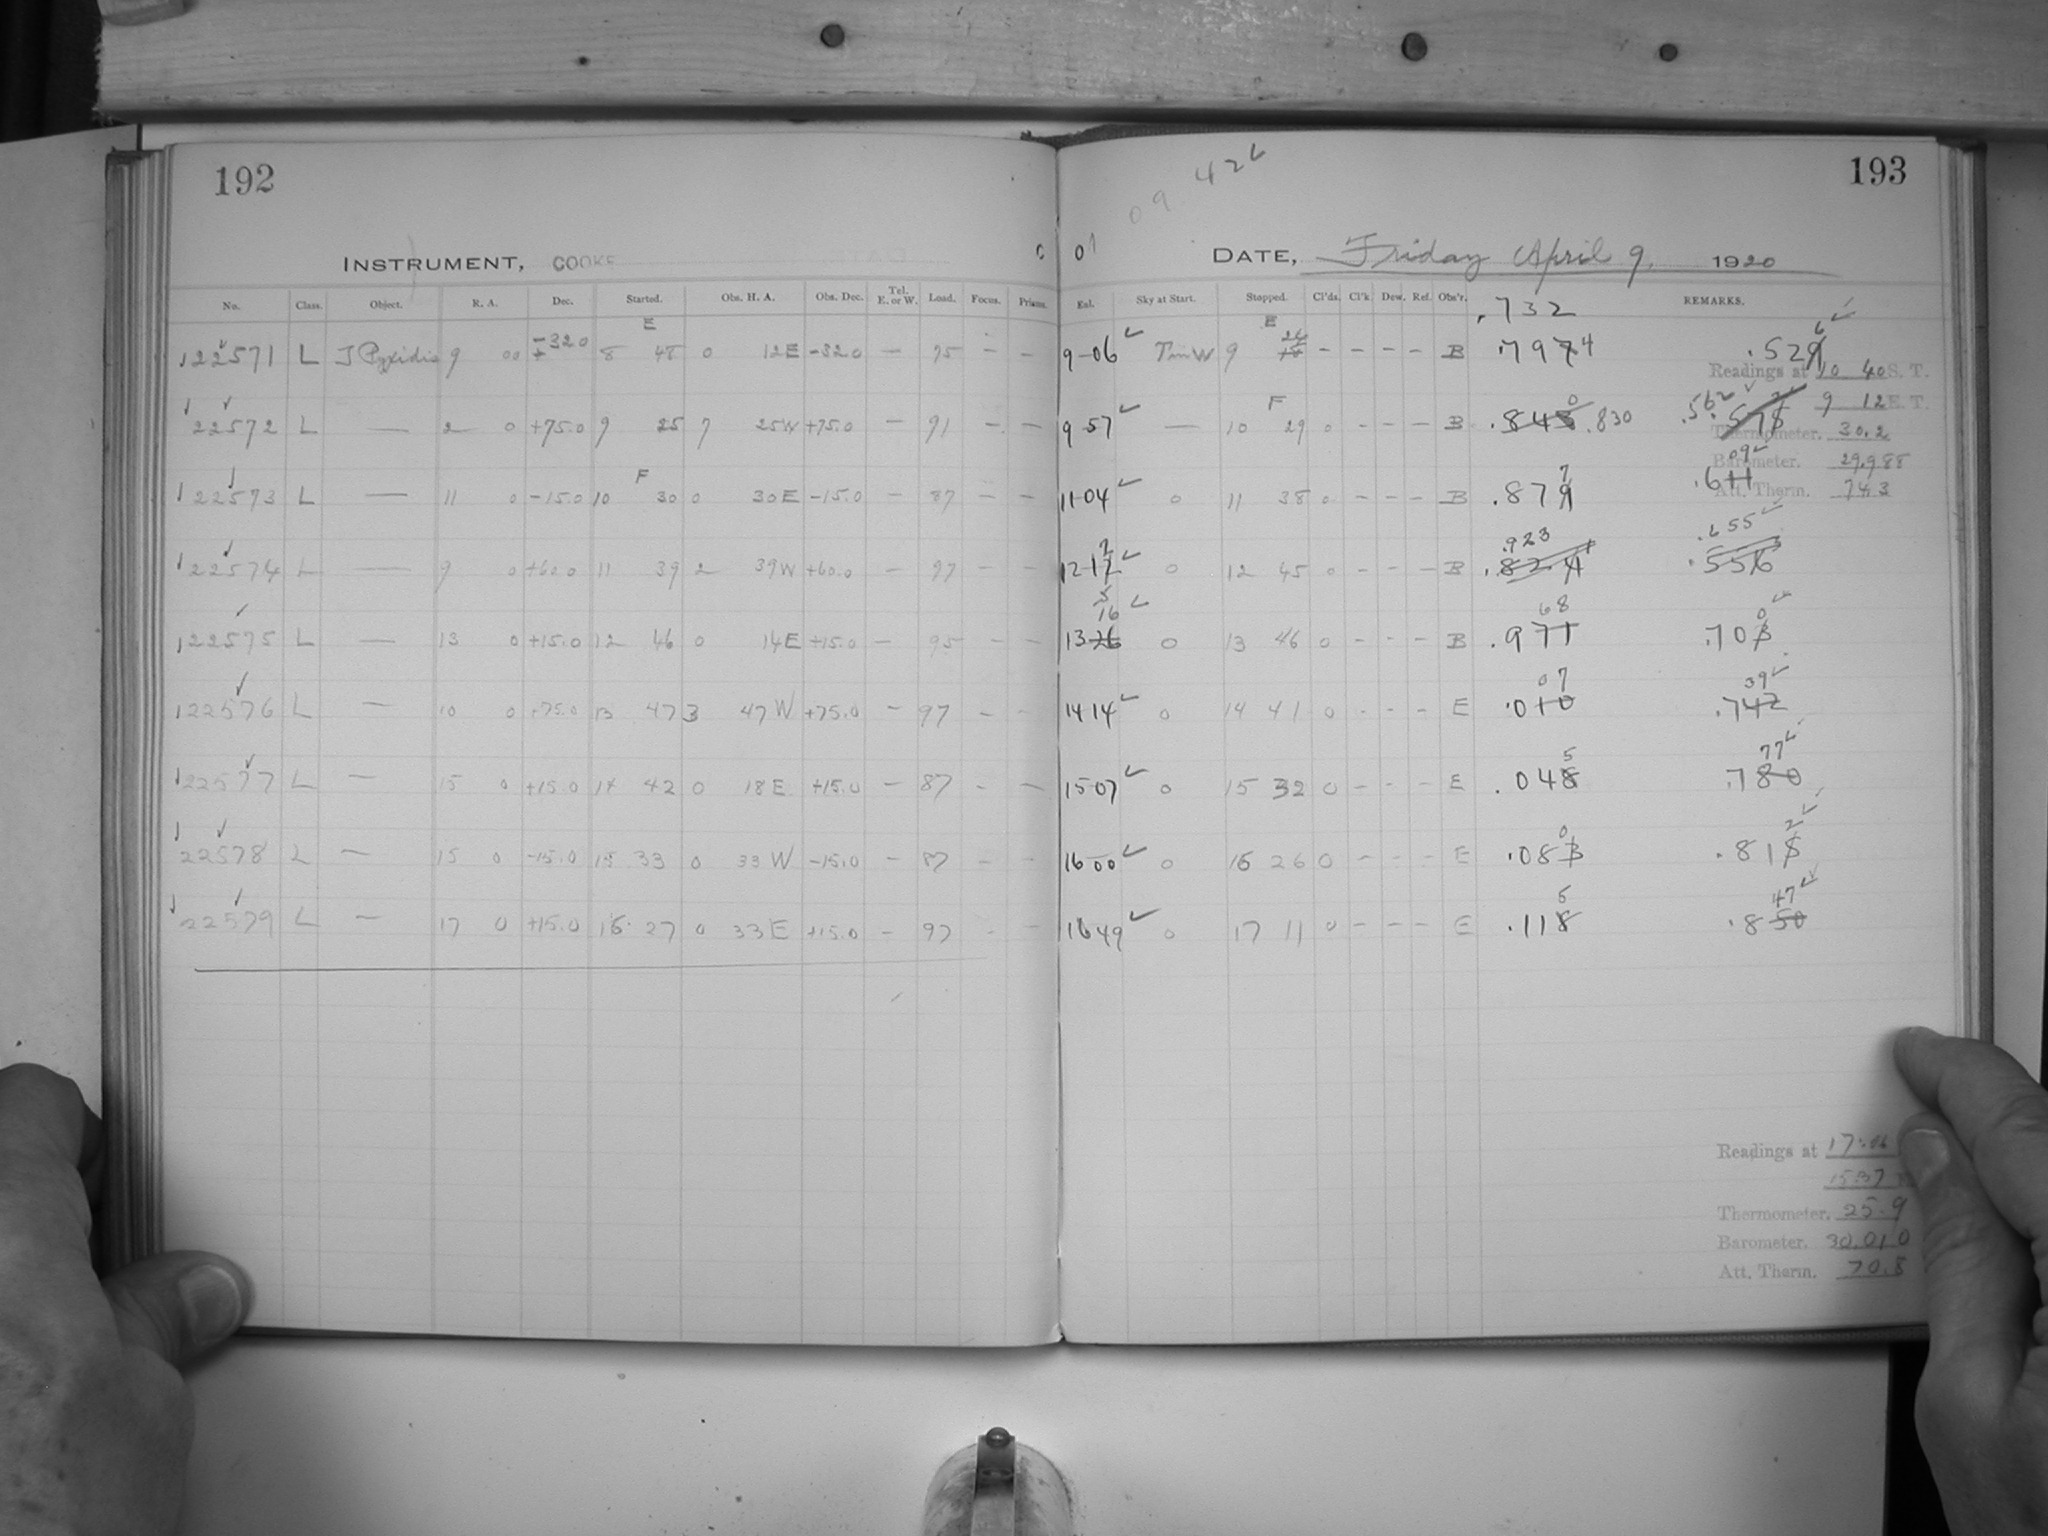 192
INSTRUMENT, COOKE
No. Class. Object. R. A. Dec. Started. Obs. H. A. Obs. Dec. Tel. E. or W. Load. Focus. Prisms.
E
122571 L J Pyxidis 9 00 -320 8 48 0 12E -32.0 — 95 - -
122572 L — 2 0 +75.0 9 25 7 25W +75.0 — 91 - -
F
122573 L — 11 0 -15.0 10 30 0 30E -15.0 - 87 - -
122574 L — 9 0 +60.0 11 39 2 39W +60.0 - 97 - -
122575 L — 13 0 +15.0 12 46 0 14E +15.0 - 95 - -
122576 L — 10 0 +75.0 13 47 3 47W +75.0 - 97 - -
122577 L — 15 0 +15.0 14 42 0 18E +15.0 - 87 - -
122578 L — 15 0 -15.0 15 33 0 33W -15.0 - 87 - -
122579 L — 17 0 +15.0 16 27 0 33E +15.0 - 97 - -
193
09.42
DATE, Friday April 9, 1920
Exl. Sky at Start. Stopped. Cl'ds. Cl'k. Dew. Ref. Obs'r. REMARKS.
.732
E
9-06 9 - - - - B .7974 .529
Readings at 10 40 S. T.
9 12 E. T.
F
9-57 — 10 29 0 - - - B .843 .830 .562 .575
Thermometer. 30.2
Barometer. 29.988
11-04 0 11 38 0 - - - B .879 7 .611 09
Att. Therm. 74.3
.923 .655
12-12 0 12 45 0 - - - B .824 .556
16 68 0
13 26 0 13 46 0 - - - B .971 .703
07 39
14 14 0 14 41 0 - - - E .010 .742
5 77
15-07 0 15 32 0 - - - E .048 .780
0 2
16-00 0 16 26 0 - - - E .083 .815
5 47
16 49 0 17 11 0 - - - E .118 .850
Readings at 17:06
15 37
Thermometer. 25.9
Barometer. 30.010
Att. Therm. 70.8